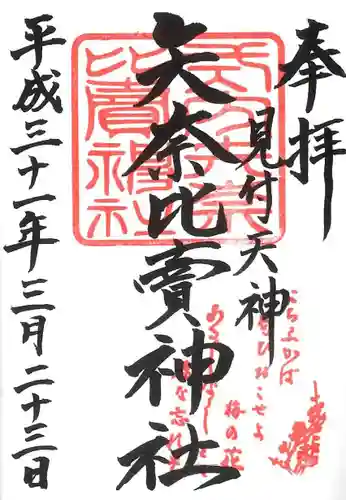 奉拝
見付天神
矢奈比賣神社
平成三十一年三月二十三日
こちふかば
にほひおこせよ
梅の花
あるじなしとて
な忘れそ